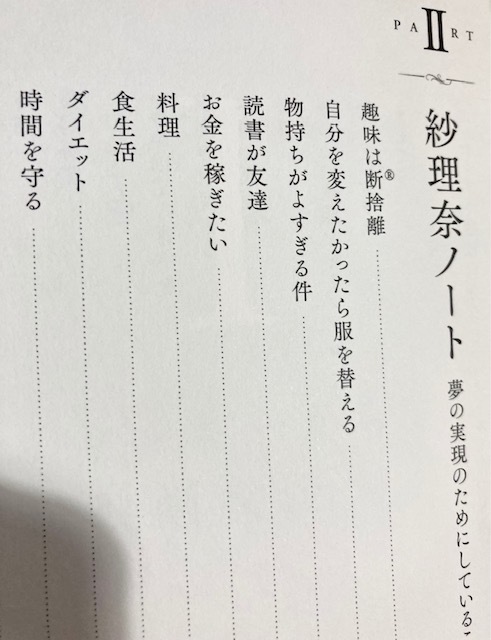 PART
II
紗理奈ノート 夢の実現のためにしている
趣味は断捨離®
自分を変えたかったら服を替える
物持ちがよすぎる件
読書が友達
お金を稼ぎたい
料理
食生活
ダイエット
時間を守る